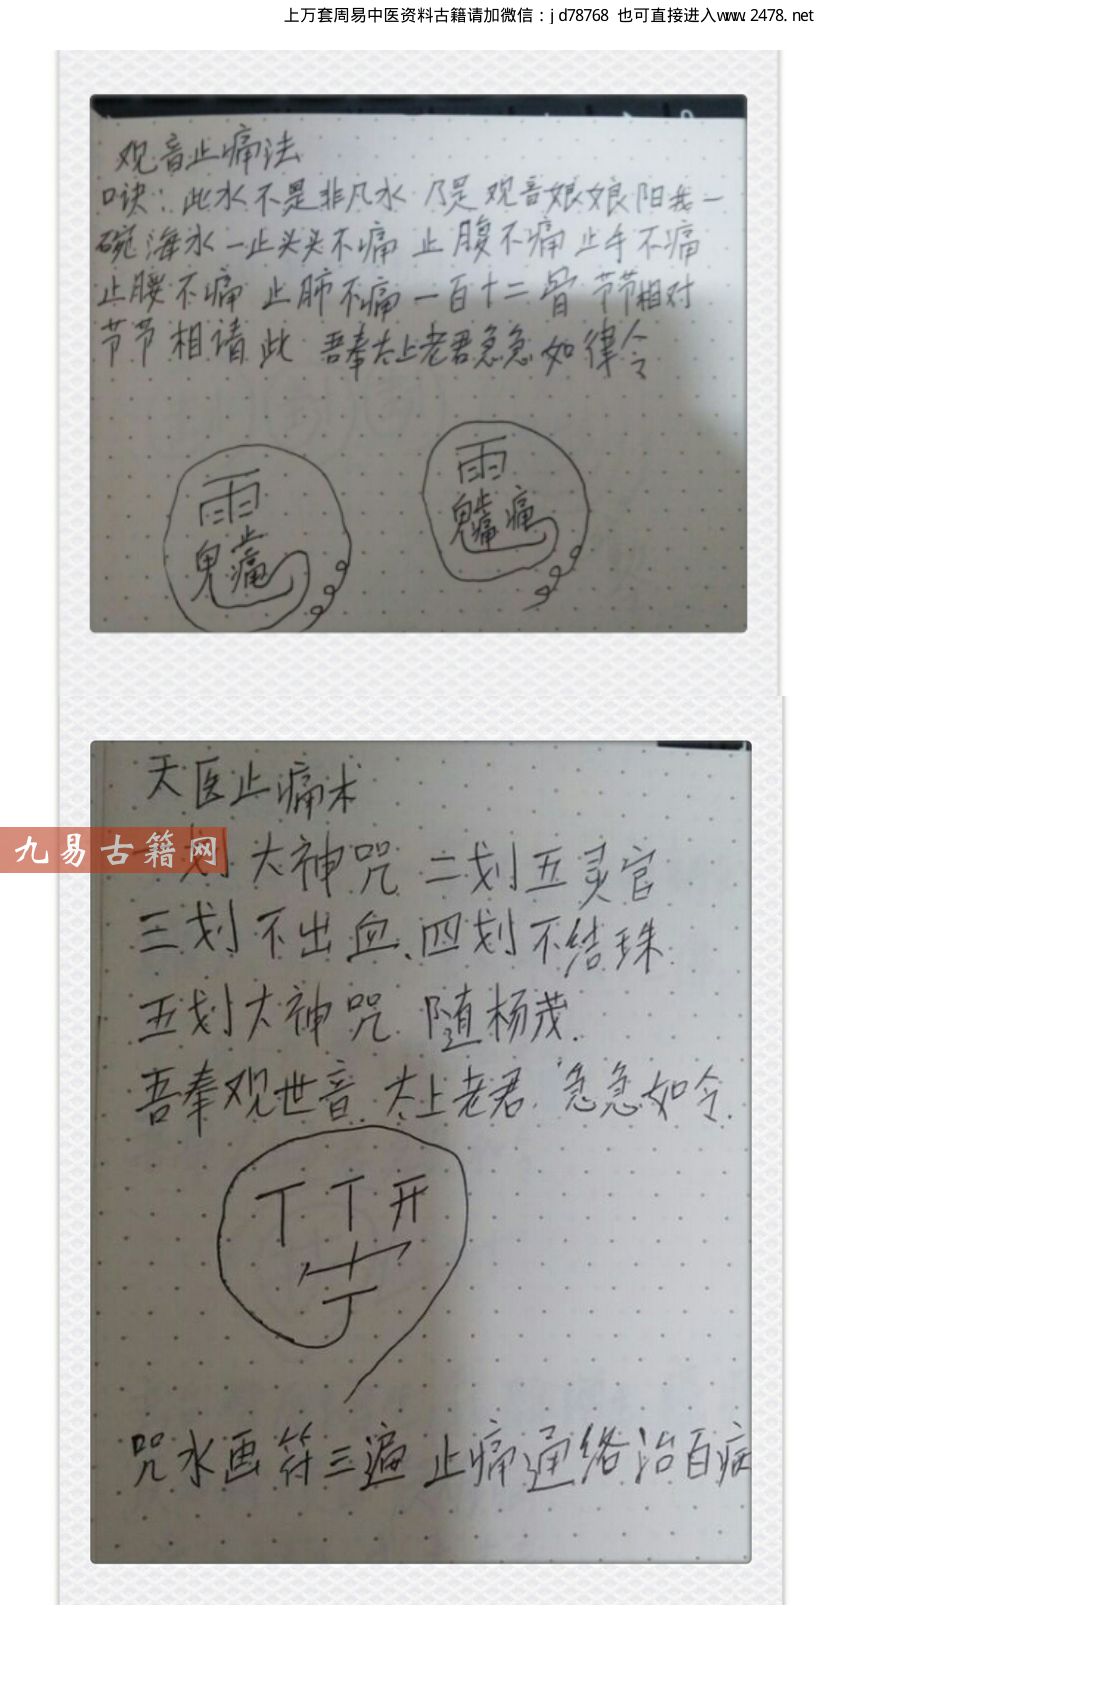 上万套周易中医资料古籍请加微信：jd78768 也可直接进入www.2478.net
观音止痛法
口诀：此水不是非凡水 乃是 观音娘娘阳我一
碗海水 一止头头不痛 止腹不痛 止手不痛
止腰不痛 止肺不痛 一百十二骨 节节相对
节节相请此 吾奉太上老君急急如律令
雨
鬼 止痛
雨
鬼 止痛 痛
天医止痛术
九易古籍网
划 大神咒 二划五灵官
三划不出血、四划不结珠
五划大神咒 随杨茂.
吾奉观世音 太上老君 急急如令.
丁 丁 开
丁
咒水画符三遍 止痛通络治百病